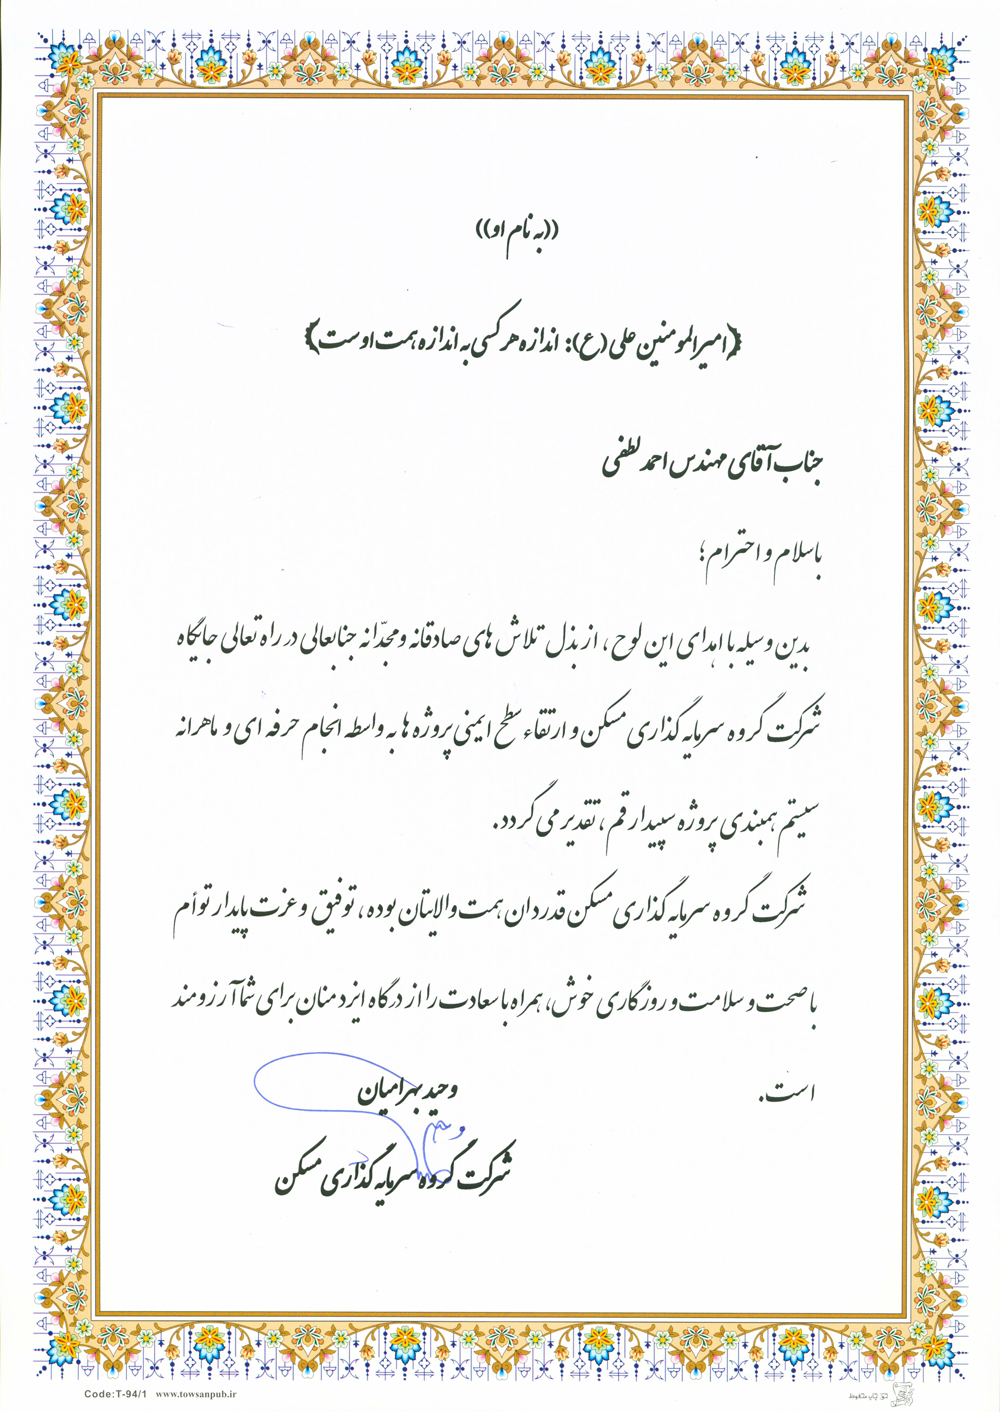 ((به نام او))
﴿امیرالمومنین علی (ع): اندازه هر کسی به اندازه همت اوست﴾
جناب آقای مهندس احمد لطفی
باسلام و احترام؛
بدین وسیله با اهدای این لوح، از بذل تلاش های صادقانه و مجدّانه جنابعالی در راه تعالی جایگاه
شرکت گروه سرمایه گذاری مسکن و ارتقاء سطح ایمنی پروژه ها به واسطه انجام حرفه ای و ماهرانه
سیستم همبندی پروژه سپیدار قم، تقدیر می گردد.
شرکت گروه سرمایه گذاری مسکن قدردان همت والایتان بوده، توفیق و عزت پایدار توأم
با صحت و سلامت و روزگاری خوش، همراه با سعادت را از درگاه ایزد منان برای شما آرزومند
است.
وحید بهرامیان
شرکت گروه سرمایه گذاری مسکن
Code:T-94/1 www.towsanpub.ir